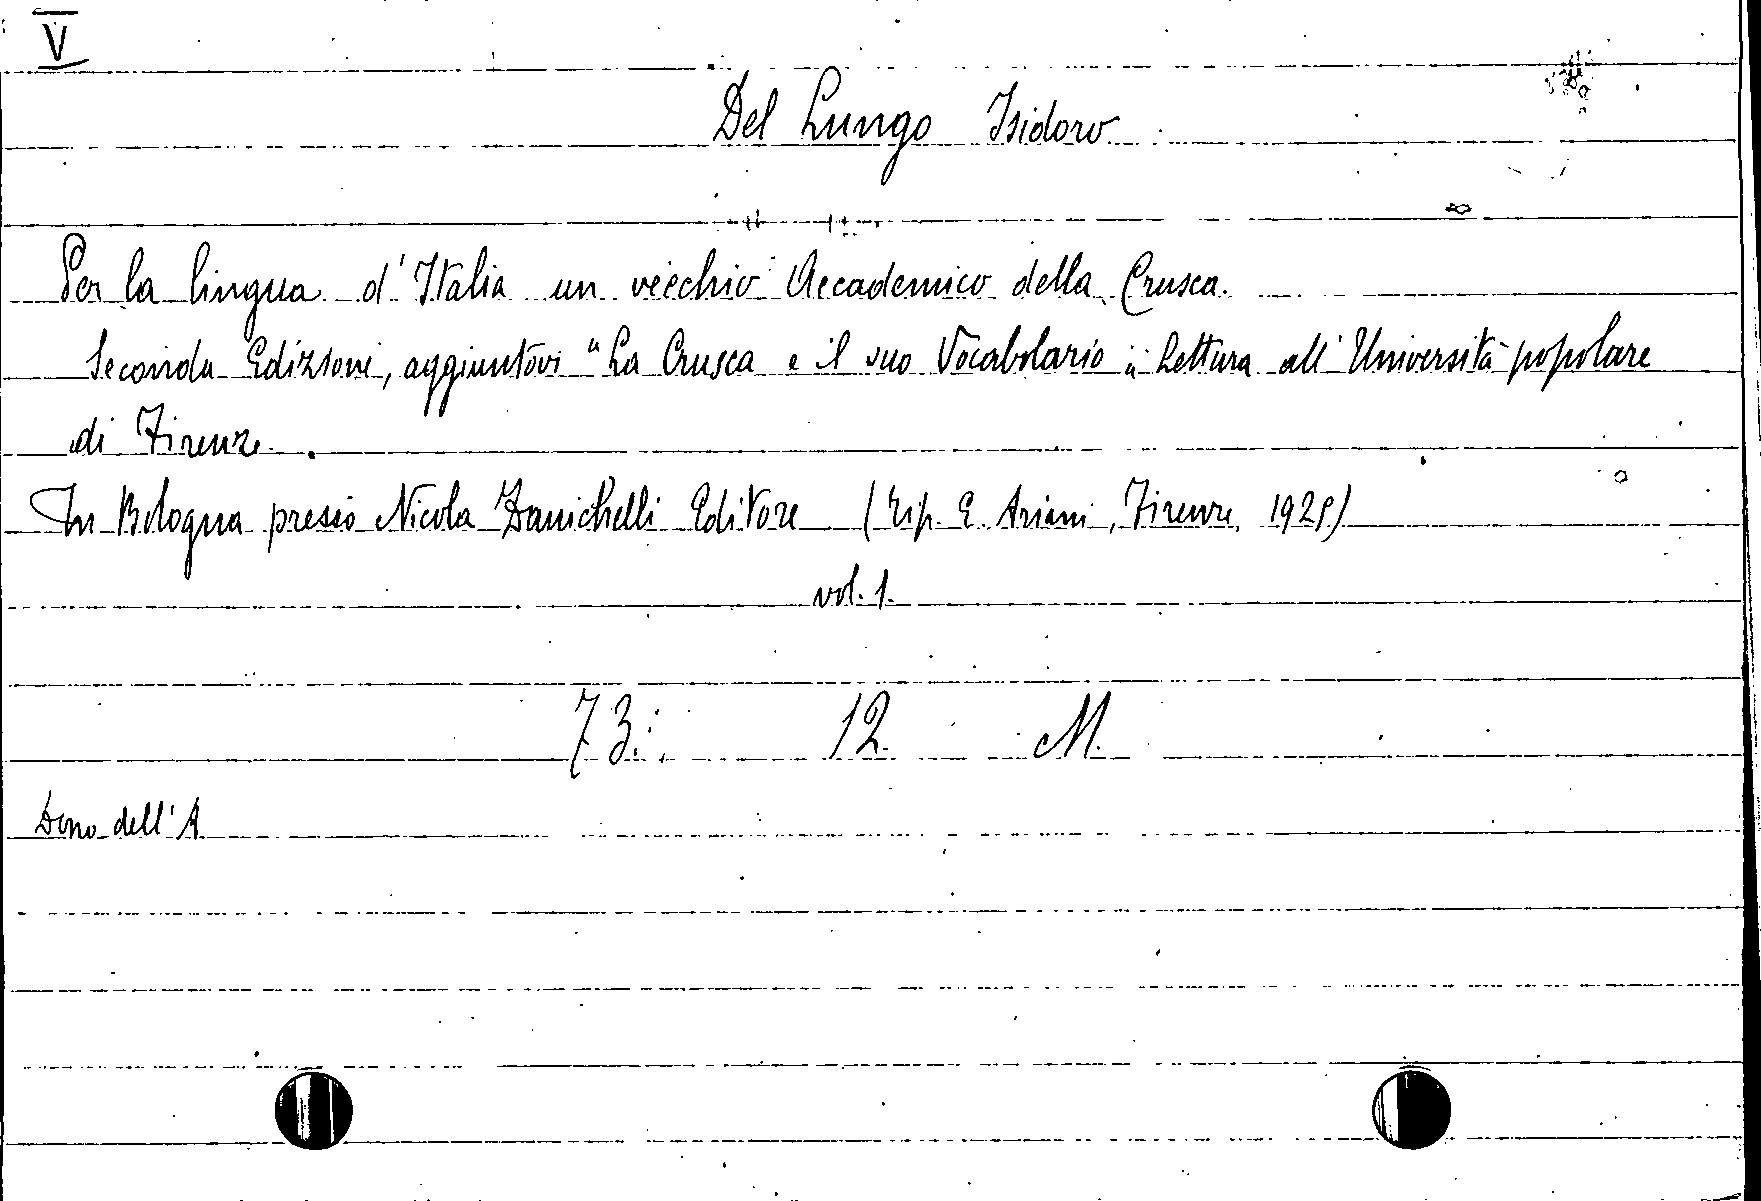 V
Del Lungo Isidoro
Per la lingua d'Italia un vecchio Accademico della Crusca.
Seconda Edizione, aggiuntovi "La Crusca e il suo Vocabolario„ Lettura all'Università popolare
di Firenze.
In Bologna presso Nicola Zanichelli Editore (Tip. E. Ariani, Firenze,
vol. 1.
73. 12. M.
Dono dell'A